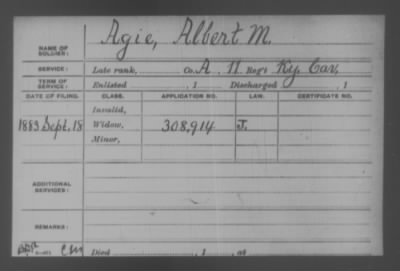 NAME OF SOLDIER: Agie, Albert M.
SERVICE: Late rank, Co. A, 11 Reg't Ky. Cav.
TERM OF SERVICE: Enlisted , 1 Discharged , 1
DATE OF FILING. CLASS. APPLICATION NO. LAW. CERTIFICATE NO.
Invalid,
1883 Sept. 18 Widow, 308,914 J.
Minor,
ADDITIONAL SERVICES:
REMARKS:
Died , 1 , at